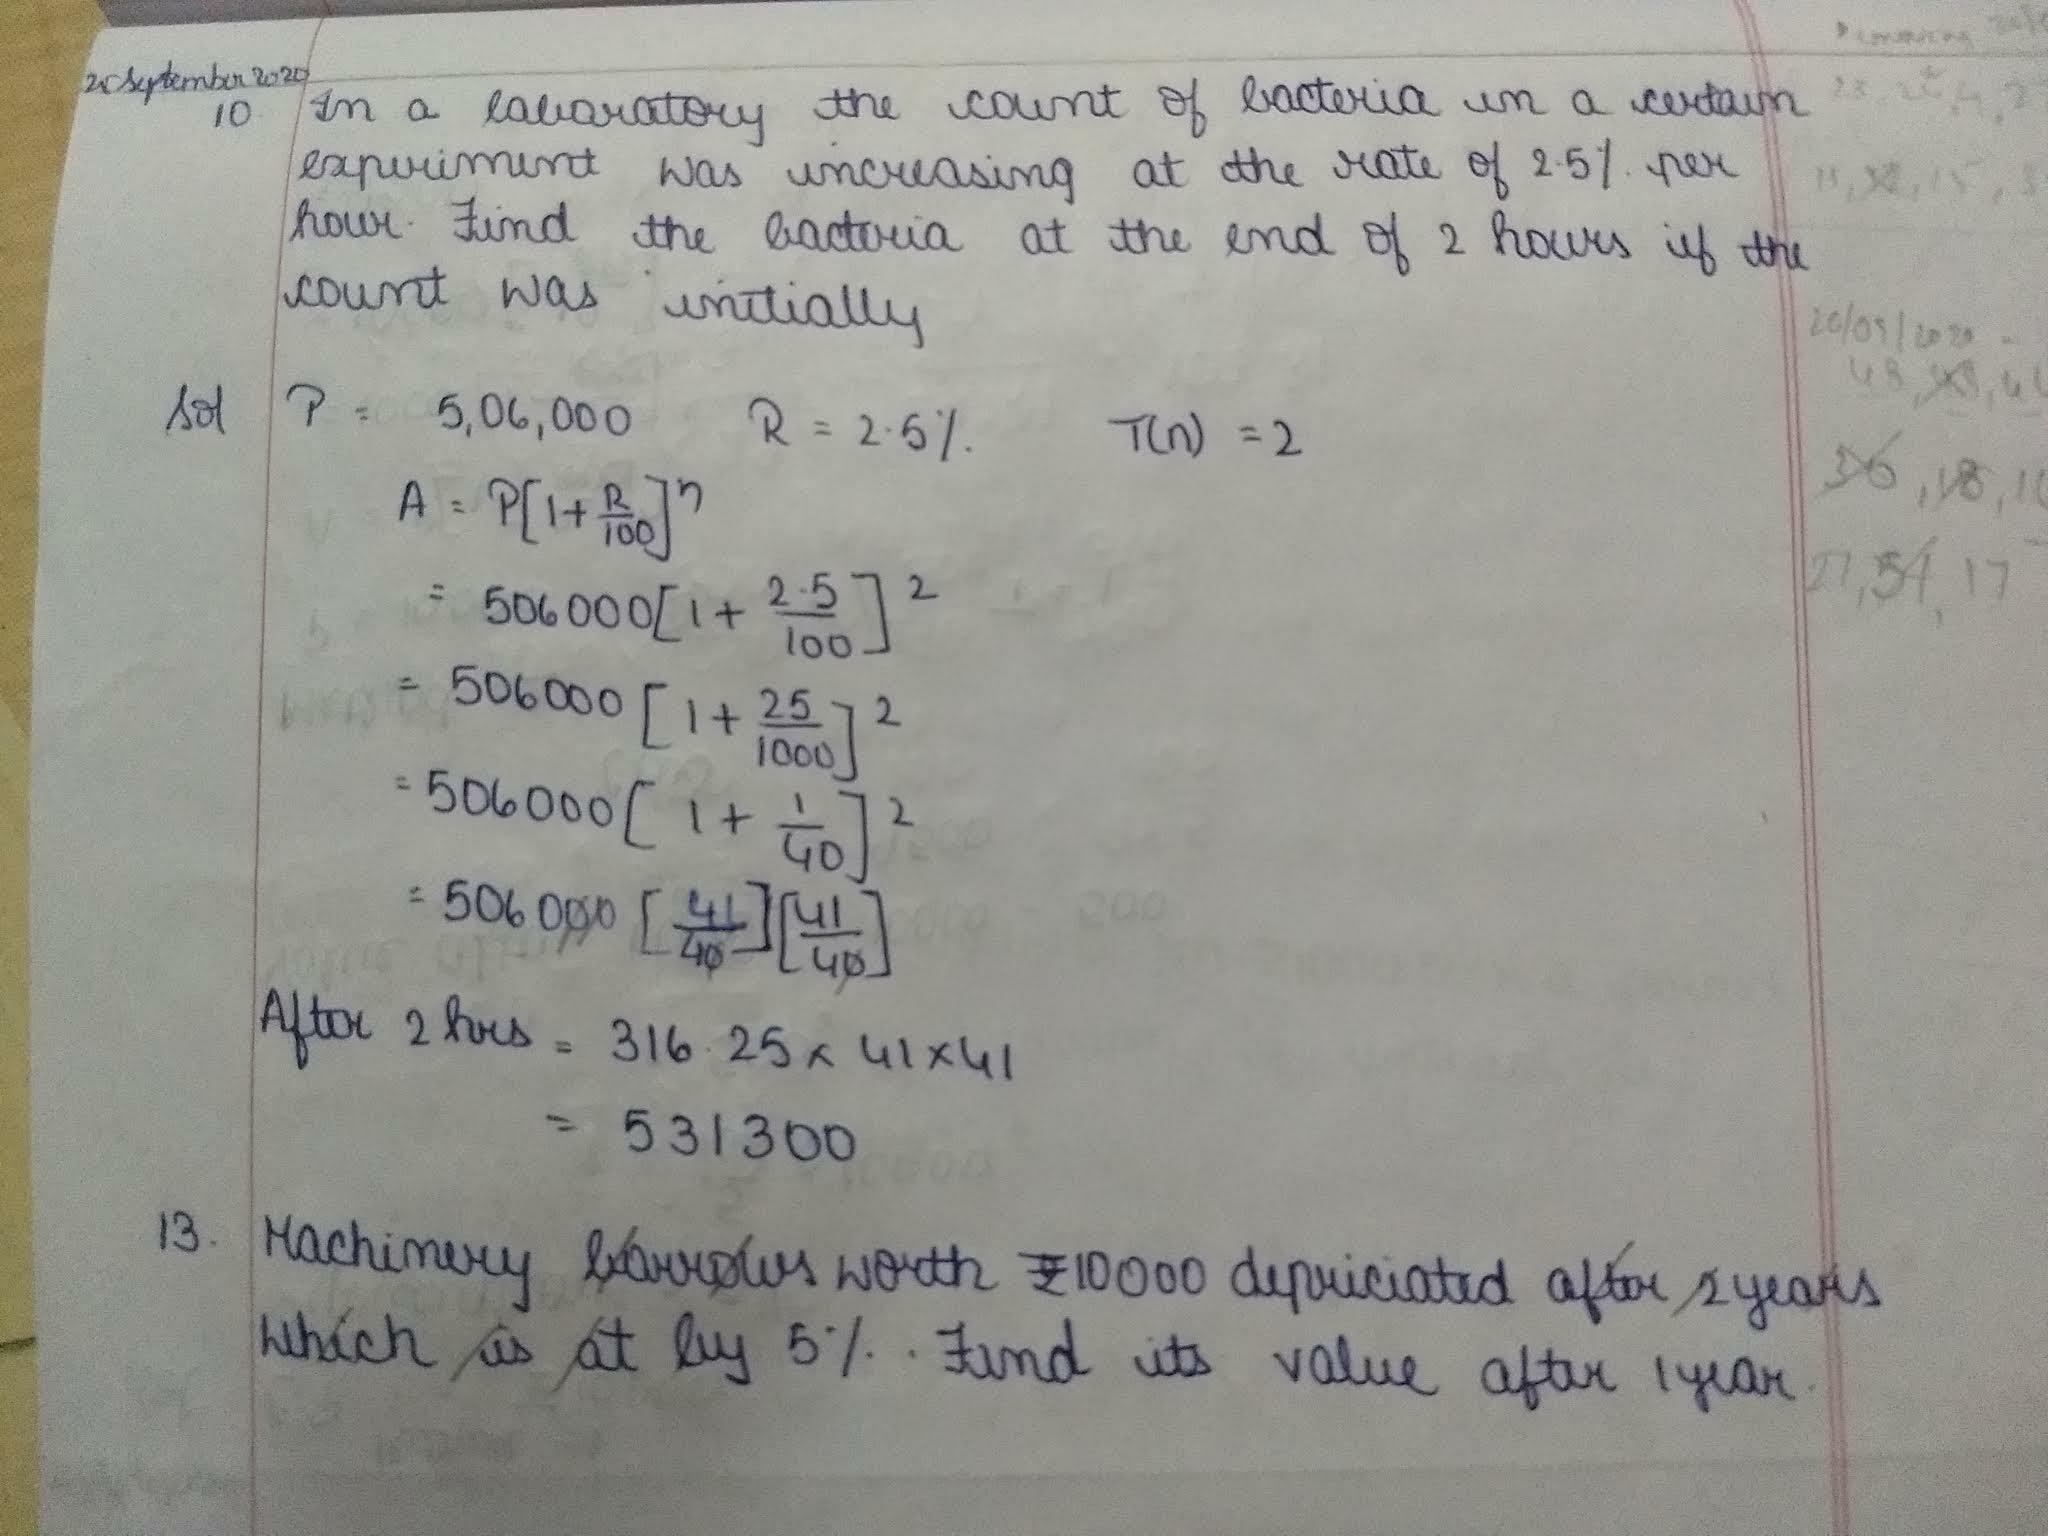 25 September 2020
10. In a labaratory the count of bacteria in a certain
experiment was increasing at the rate of 2.5%. per
hour. Find the bacteria at the end of 2 hours if the
count was initially
Sol P = 5,06,000 R = 2.5%. T(n) = 2
A = P[1+R/100]^n
= 506000[1+ 2.5/100]^2
= 506000[1+ 25/1000]^2
= 506000[1+ 1/40]^2
= 506000[41/40][41/40]
After 2 hrs = 316.25 × 41 × 41
= 531300
13. Machinery worth ₹10000 depriciated after 2 years
which is at by 5%. Find its value after 1 year.
20/09/2020
48, 
36, 18, 
27, 54, 17